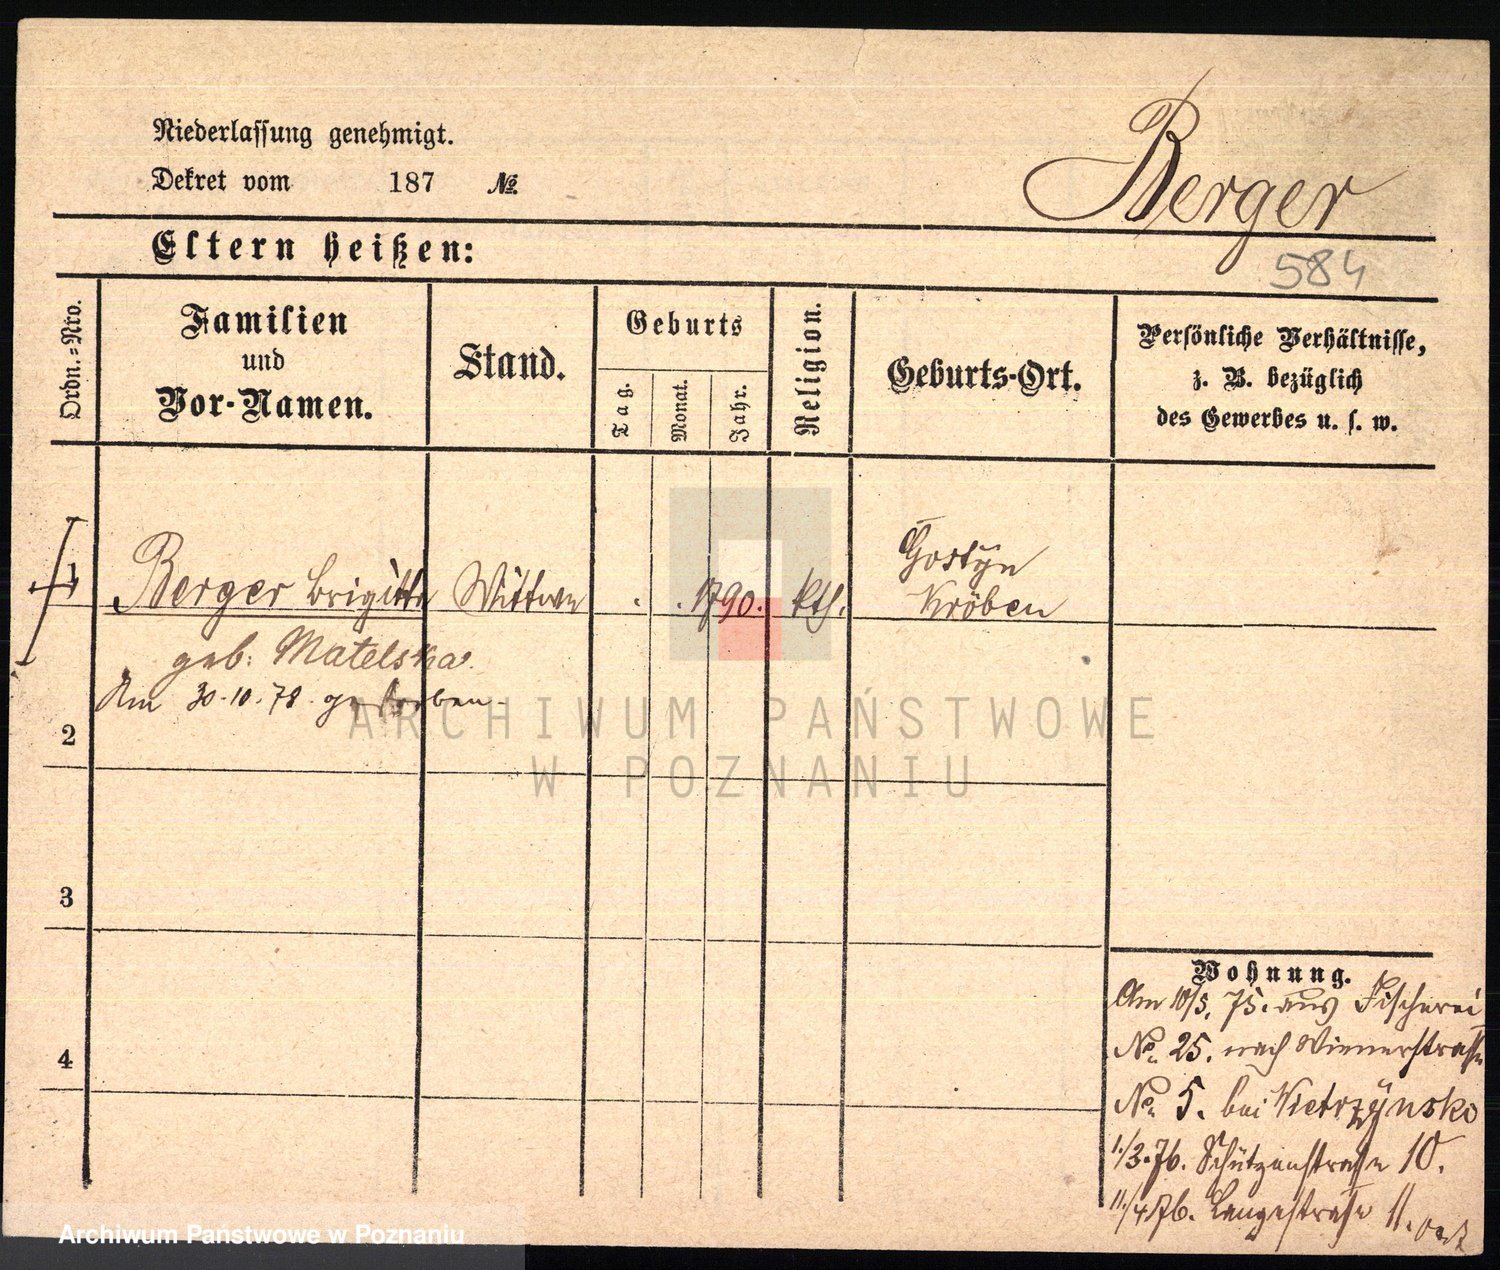 Niederlassung genehmigt.
Dekret vom 187 №
Berger
Eltern heißen:
584
Ordn.-Nro.
Familien
und
Vor-Namen.
Stand.
Geburts
Tag.
Monat.
Jahr.
Religion.
Geburts-Ort.
Persönliche Verhältnisse,
z. B. bezüglich
des Gewerbes u. s. w.
1
Berger Brigitte Wittwe 1790. kth. Gostyn
Kröben
geb: Matelska
Am 30.10.78 gestorben.
2
ARCHIWUM PAŃSTWOWE
W POZNANIU
3
Wohnung.
Am 10/5. 75. aus Fischerei
No. 25. nach Wienerstraße
No. 5. bei Wietrzynsko
4
1./3.76. Schützenstraße 10.
11./4.76. Langestraße 11.
Archiwum Państwowe w Poznaniu